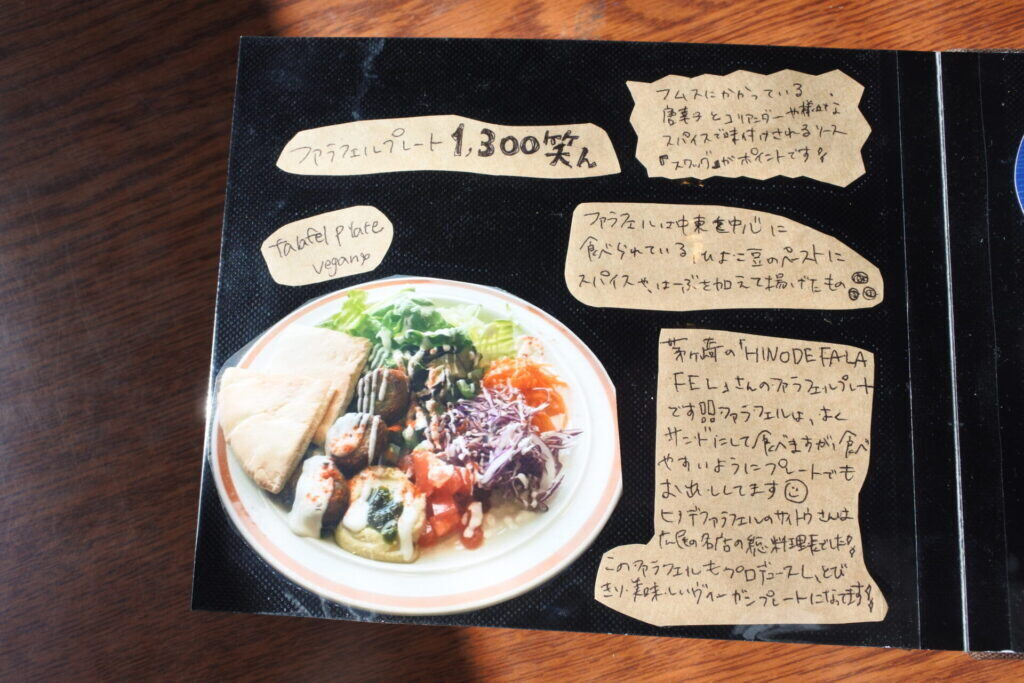 ファラフェルプレート 1,300笑ん
フムスにかかっている、
唐辛子とコリアンダーや様々な
スパイスで味付けされるソース
『スフッグ』がポイントです!
falafel plate
vegan
ファラフェルは中東を中心に
食べられている ひよこ豆のペーストに
スパイスや、はーぶを加えて揚げたもの
茅ヶ崎の「HINODE FALA
FEL」さんのファラフェルプレート
です!!ファラフェルは、よく
サンドにして食べますが、食べ
やすいようにプレートでも
お出ししてます
ヒノデファラフェルのサイトウさんは
広尾の名店の総料理長でした!
このファラフェルもプロデュースし、とび
きり美味しいヴィーガンプレートになってます!